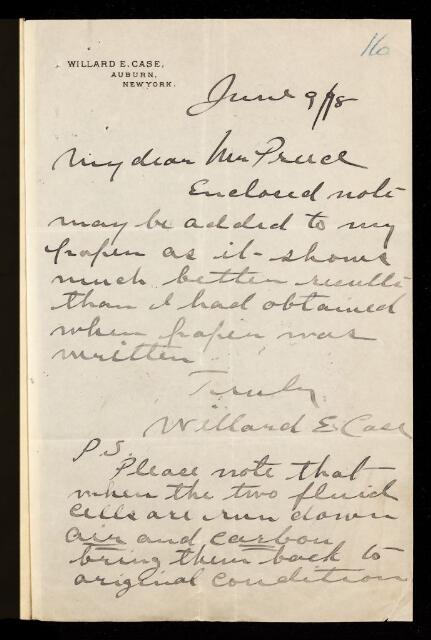 16
WILLARD E. CASE,
AUBURN,
NEW YORK.
June 9/98
My dear Mr Preece
Enclosed note
may be added to my
paper as it shows
much better results
than I had obtained
when paper was
written.
Truly
Willard E Case
P.S.
Please note that
when the two fluid
cells are run down
air and carbon
bring them back to
original condition